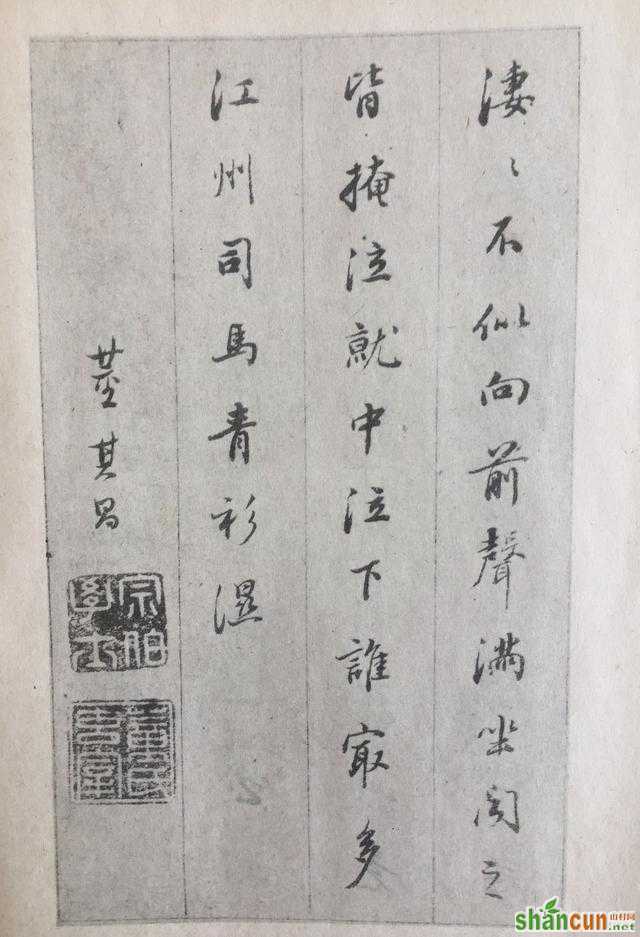 淒〻不似向前聲滿坐聞之
皆掩泣就中泣下誰㝡多
江州司馬青衫濕
董其昌
宗伯學士
shancun
山村网
.net